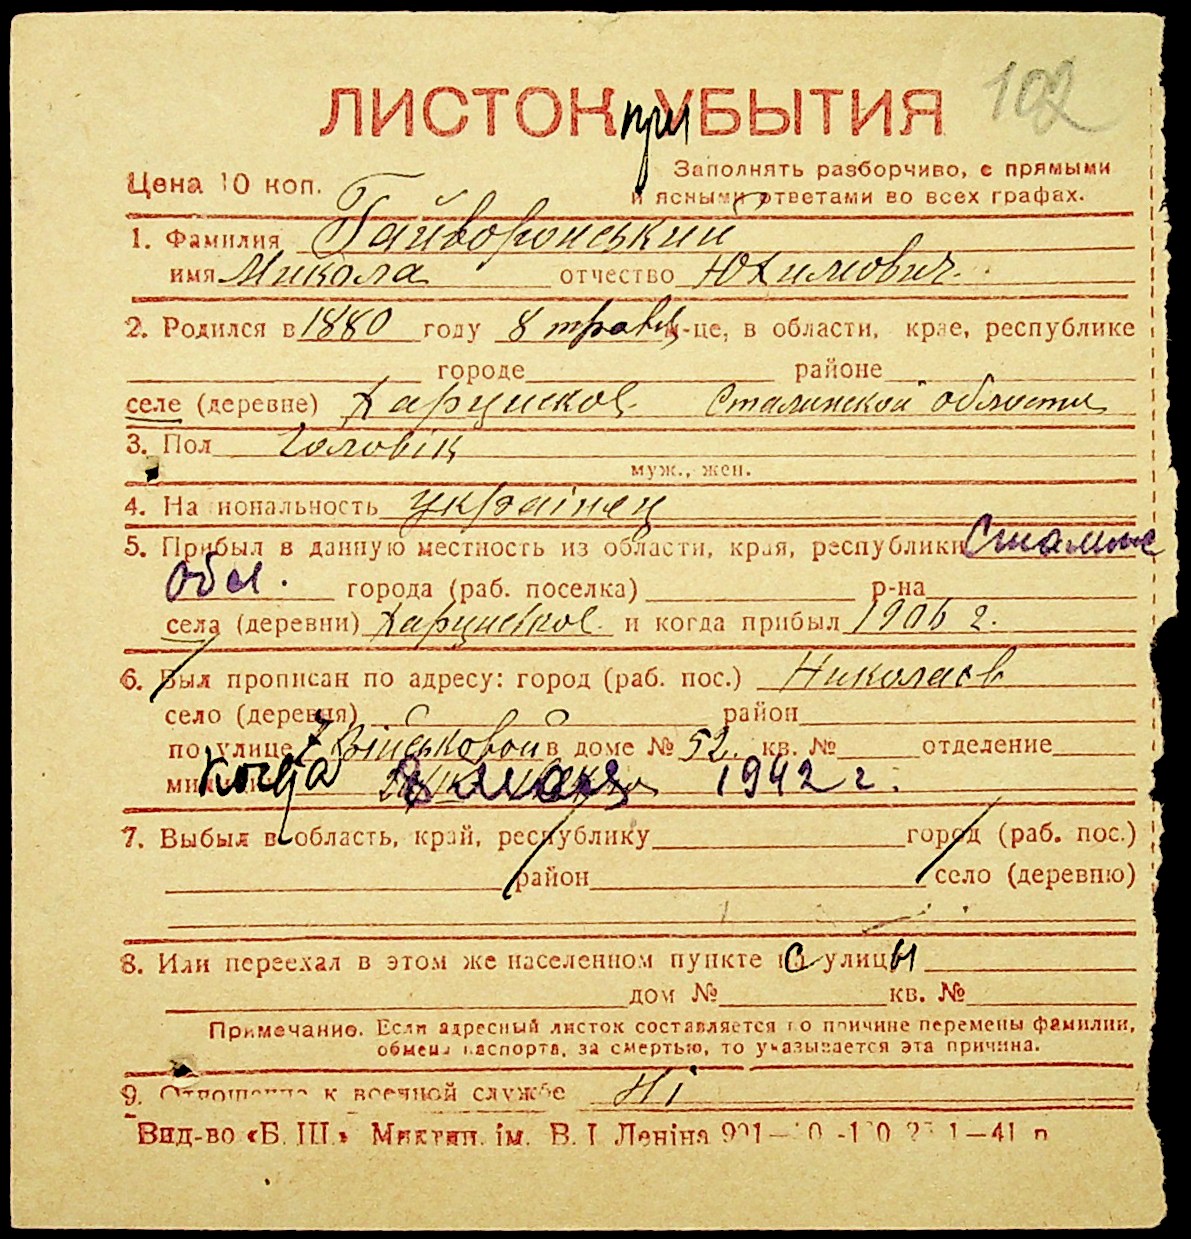 102
ЛИСТОК при УБЫТИЯ
Цена 10 коп.
Заполнять разборчиво, с прямыми
и ясными ответами во всех графах.
1. Фамилия Гайворонський
имя Микола отчество Юхимович
2. Родился в 1880 году 8 травн м-це, в области, крае, республике
городе районе
селе (деревне) Харцизков Сталинской области
3. Пол Чоловік
муж., жен.
4. Национальность українец
5. Прибыл в данную местность из области, края, республики Сталинс
обл. города (раб. поселка) р-на
села (деревни) и когда прибыл 1906 г.
6. Был прописан по адресу: город (раб. пос.) Николаев
село (деревня) район
по улице 7 Військовой в доме № 52 кв. № отделение
когда 1942 г.
7. Выбыл в область, край, республику город (раб. пос.)
район село (деревню)
8. Или переехал в этом же населенном пункте с улицы
дом № кв. №
Примечание. Если адресный листок составляется по причине перемены фамилии,
обмена паспорта, за смертью, то указывается эта причина.
9. Отношение к военной службе Ні
Вид-во «Б. Ш.» Миктип. ім. В. І. Леніна